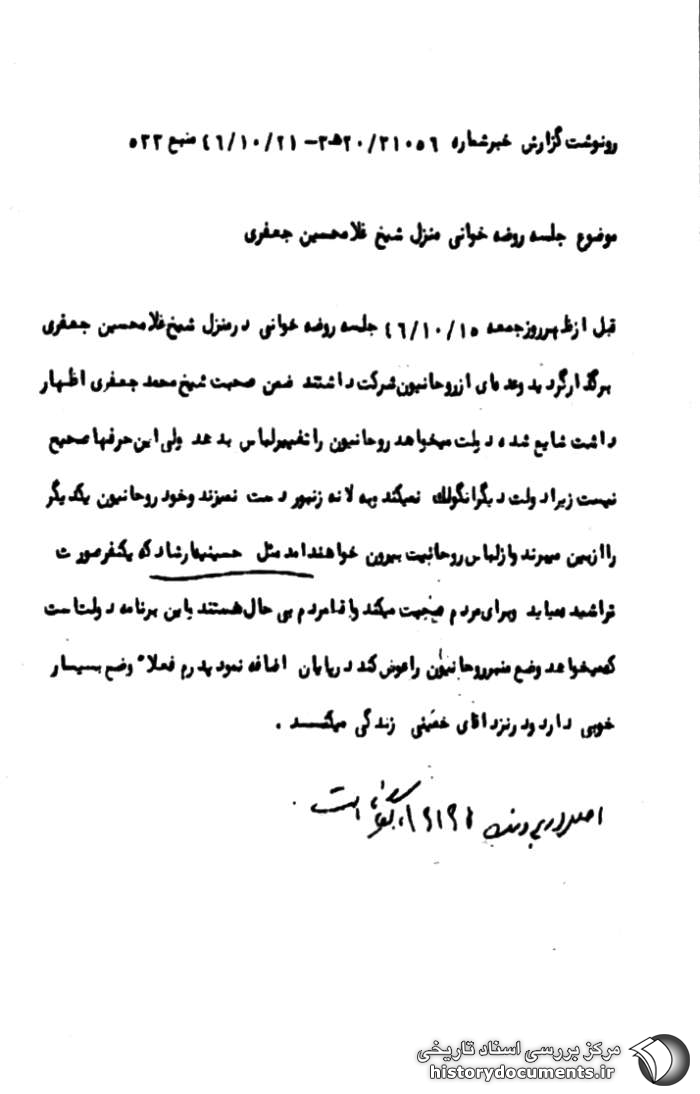 رونوشت گزارش خبرشماره ۲۰/۲۱۰۵۶ه‍۳-۴۶/۱۰/۲۱ منبع ۵۲۳
موضوع جلسه روضه خوانی منزل شیخ غلامحسین جعفری
قبل ازظهرروزجمعه ۴۶/۱۰/۱۵ جلسه روضه خوانی درمنزل شیخ غلامحسین جعفری
برگذارگردیدوعده‌ای ازروحانیون شرکت داشتند ضمن صحبت شیخ محمد جعفری اظهار
داشت شایع شده دولت میخواهد روحانیون راتغییرلباس بدهد ولی این حرفها صحیح
نیست زیرادولت دیگرانگولک نمیکند وبه لانه زنبور دست نمیزند وخود روحانیون یکدیگر
راازبین میبرند وازلباس روحانیت بیرون خواهندامد مثل حسینیه‌ارشادکه یکنفرصورت
تراشیده میاید وبرای مردم صحبت میکند واقعامردم بی حال هستند بااین برنامه دولت است
که میخواهد وضع منبرروحانیون راعوض کند درپایان اضافه نمودپدرم فعلاً وضع بسیار
خوبی دارد ودرنزداقای خمینی زندگی میکند .
اصل در پرونده است .
مرکز بررسی اسناد تاریخی
historydocuments.ir